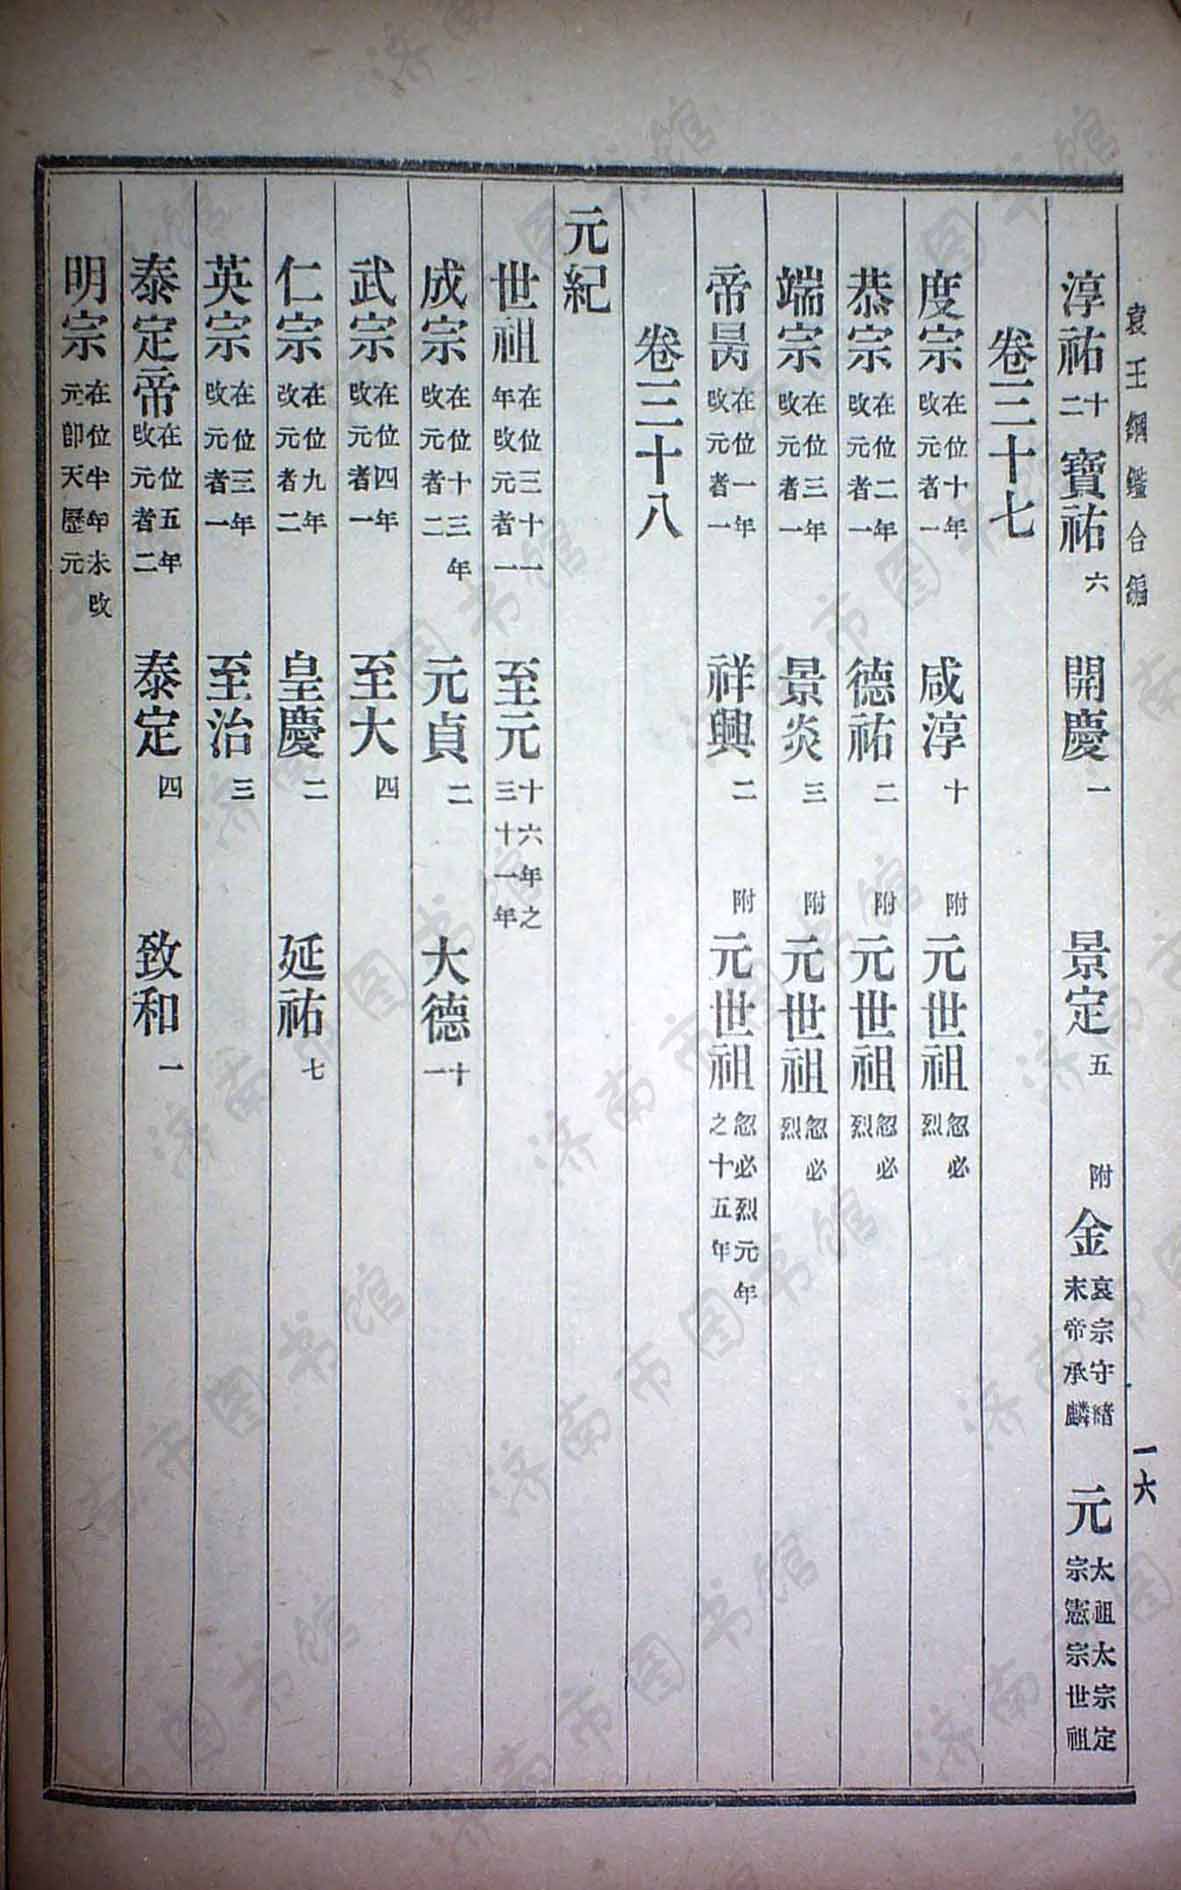 袁王綱鑑合編
一六
淳祐十二 寶祐六 開慶一 景定五 附金哀宗守緒末帝承麟 元太祖太宗定宗憲宗世祖
卷三十七
度宗在位十年改元者一 咸淳十 附元世祖忽必烈
恭宗在位二年改元者一 德祐二 附元世祖忽必烈
端宗在位三年改元者一 景炎三 附元世祖忽必烈
帝昺在位一年改元者一 祥興二 附元世祖忽必烈元年之十五年
卷三十八
元紀
世祖在位三十一年改元者一 至元十六年之三十一年
成宗在位十三年改元者二 元貞二 大德十一
武宗在位四年改元者一 至大四
仁宗在位九年改元者二 皇慶二 延祐七
英宗在位三年改元者一 至治三
泰定帝在位五年改元者二 泰定四 致和一
明宗在位半年未改元卽天歷元
济南市图书馆